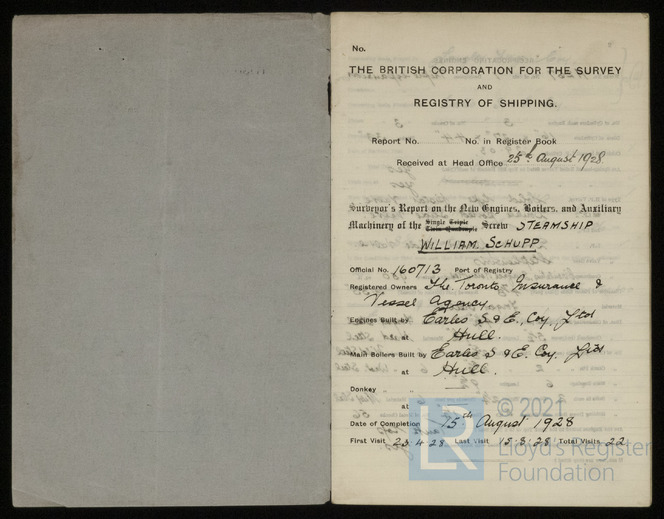 No.
THE BRITISH CORPORATION FOR THE SURVEY
AND
REGISTRY OF SHIPPING.
Report No. No. in Register Book
Received at Head Office 25th August 1928
Surveyor's Report on the New Engines, Boilers, and Auxiliary
Machinery of the Single Triple Twin Quadruple Screw STEAMSHIP
WILLIAM SCHUPP
Official No. 160713 Port of Registry
Registered Owners The Toronto Insurance &
Vessel Agency
Engines Built by Earles S & E., Coy, Ltd
at Hull.
Main Boilers Built by Earles S & E. Coy. Ltd
at Hull.
Donkey "
at
Date of Completion 15th August 1928
First Visit 23.4.28 Last Visit 15.8.28 Total Visits 22
LR
© 2021
Lloyd's Register
Foundation